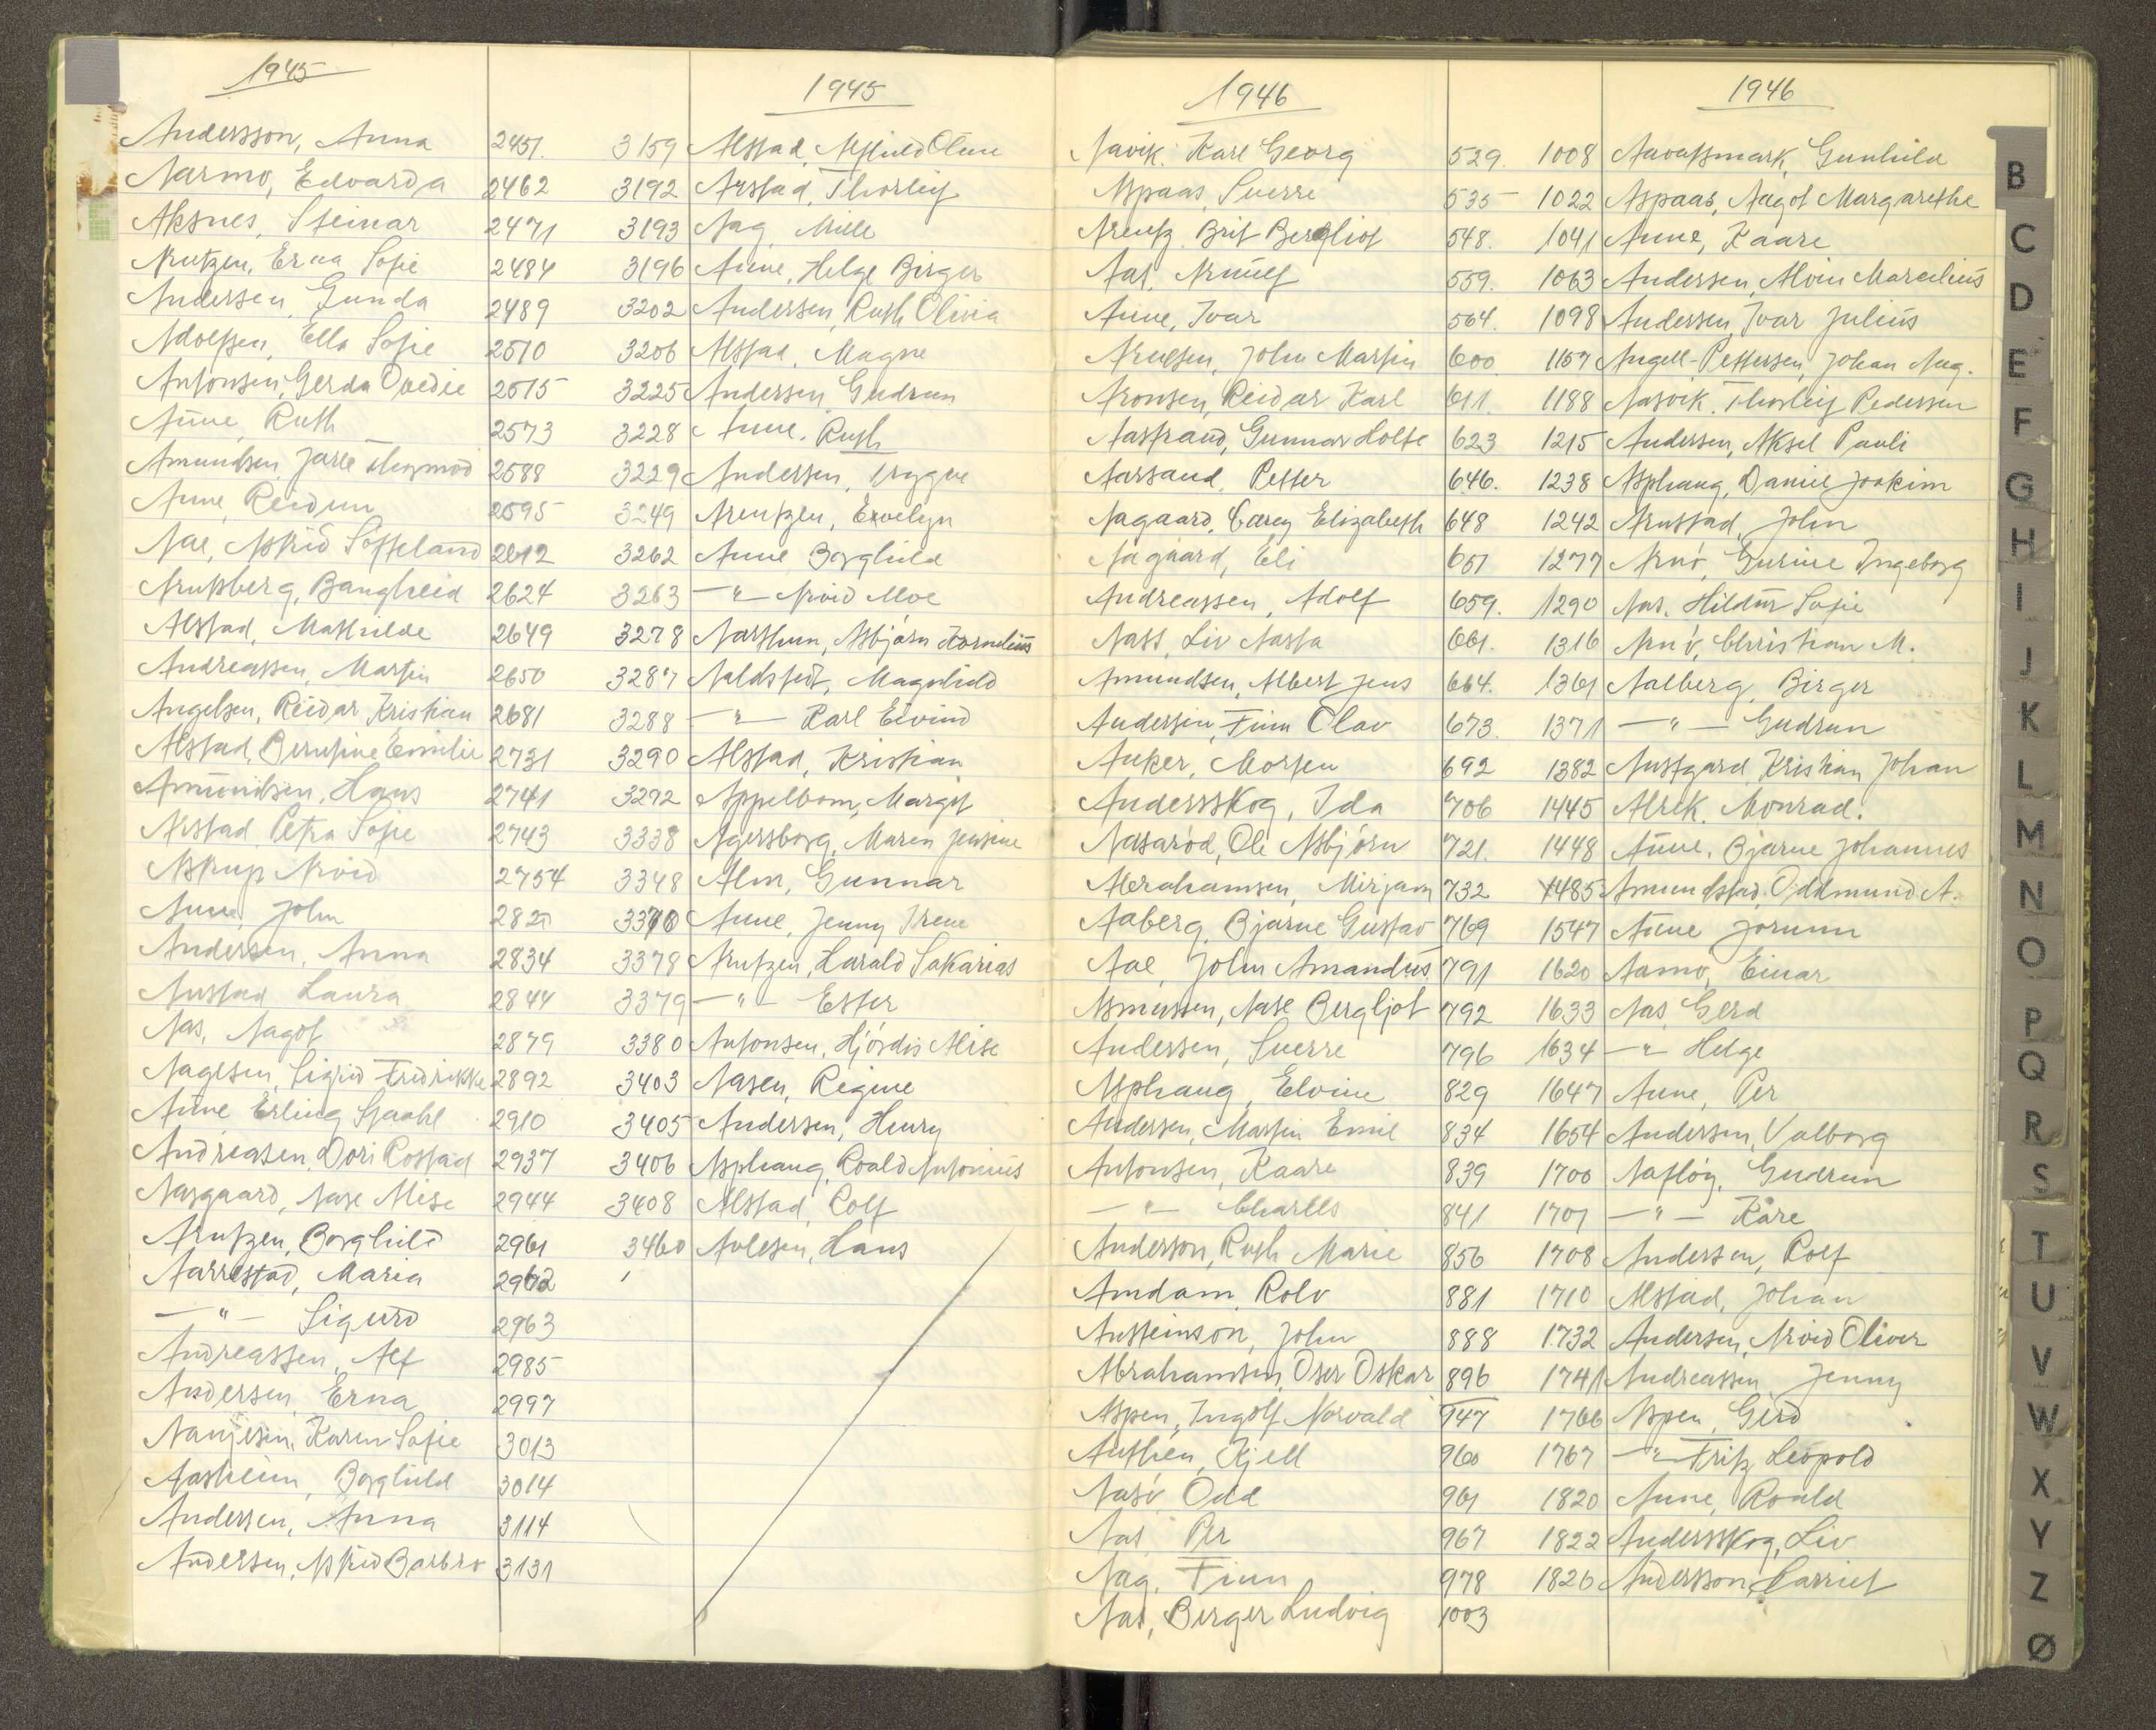 1945
Andersson, Anna 2451.
Aarmo, Edvarda 2462
Aksnes, Steinar 2471
Arntzen, Erna Sofie 2484
Andersen, Gunda 2489
Adolfsen, Ella Sofie 2510
Antonsen, Gerda Ovedie 2515
Aune, Ruth 2573
Amundsen, Jarle Thormod 2588
Aune, Reidun 2595
Aae, Astrid Soffeland 2612
Arntsberg, Bangheid 2624
Alstad, Mathilde 2649
Andreassen, Martin 2650
Angelsen, Reidar Kristian 2681
Alstad, Berntine Emilie 2731
Amundsen, Hans 2741
Alstad Petra Sofie 2743
Askup Arvid 2754
Aune, John 2820
Andersen, Anna 2834
Austad Laura 2844
Aas, Aagot 2879
Aagesen, Sigrid Fredrikke 2892
Aune Erling Graahl 2910
Andreasen, Dori Rostad 2937
Aasgaard, Aase Alise 2944
Arntzen, Borghild 2961
Aarrestad, Maria 2962
—"— Sigurd 2963
Andreassen, Alf 2985
Andersen, Erna 2997
Aanjesen, Karen Sofie 3013
Aasheim, Borghild 3014
Andersen, Anna 3114
Andersen, Astrid Barbro 3131
1945
3159 Alstad, Alfhild Oline
3192 Arstad, Thorleif
3193 Aag, Mille
3196 Aune, Helge Birger
3202 Andersen, Ruth Olivia
3206 Alstad, Magne
3225 Andersen Gudrun
3228 Aune, Ruth
3229 Andersen, Tryggve
3249 Arentzen, Evelyn
3262 Aune Borghild
3263 —"— Arvid Moe
3278 Aarthun, Asbjørn Kornelius
3287 Aaldstedt, Magnhild
3288 —"— Karl Eivind
3290 Alstad, Kristian
3292 Appelbom, Margit
3338 Agersborg, Maren Jensine
3348 Alm, Gunnar
3370 Aune, Jenny Irene
3378 Arntzen, Harald Sakarias
3379 —"— Ester
3380 Antonsen, Hjørdis Alise
3403 Aasen, Regine
3405 Andersen, Henry
3406 Asphaug, Roald Antonius
3408 Alstad, Rolf
3460 Avlesen, Hans
1946
Aavik, Karl Georg 529.
Aspaas, Sverre 535
Arentz, Brit Bergliot 548.
Aas, Arnulf 559.
Aune, Ivar 564.
Arnesen, John Martin 600.
Aronsen, Reidar Karl 611.
Aastrand, Gunnar Holte 623
Aarsand, Petter 646.
Aagaard, Carey Elizabeth 648
Aagaard, Eli 651
Andreassen, Adolf 659.
Aass, Liv Aasta 661.
Amundsen, Albert Jens 664.
Andersen, Finn Olav 673.
Anker, Morten 692
Andersskog, Ida 706
Aasarød, Ole Asbjørn 721.
Abrahamsen, Mirjam 732
Aaberg, Bjarne Gustav 769
Aae, John Amandus 791
Asmussen, Aase Bergljot 792
Andersen, Sverre 796
Asphaug, Elvine 829
Andersen, Martin Emil 834
Antonsen, Kaare 839
—"— Charles 841
Anderson, Ruth Marie 856
Amdam, Rolv 881
Austeinson, John 888
Abrahamsen, Oser Oskar 896
Aspen, Ingolf Norvald 947
Authen, Kjell 960
Aasø Odd 961
Aas, Per 967
Aag, Finn 978
Aas, Berger Ludvig 1003
1946
1008 Aavatsmark, Gunhild
1022 Aspaas, Aagot Margarethe
1041 Aune, Kaare
1063 Andersen, Alvin Marcelius
1098 Andersen, Ivar Julius
1157 Angell-Pettersen, Johan Aug.
1188 Aasvik, Thorleif Pedersen
1215 Andersen, Aksel Pauli
1238 Asphaug, Daniel Joakim
1242 Arnstad, John
1277 Arnø, Gurine Ingeborg
1290 Aas, Hildur Sofie
1316 Arnø, Christian M.
1361 Aalberg, Birger
1371 —"— Gudrun
1382 Austgard, Kristian Johan
1445 Alrek, Monrad.
1448 Aune, Bjarne Johannes
1485 Amundstad, Oddmund A.
1547 Aune Jorunn
1620 Aamo, Einar
1633 Aas, Gerd
1634 —"— Helge
1647 Aune, Per
1654 Andersen, Valborg
1700 Aafløy, Gudrun
1701 —"— Kåre
1708 Andersen, Rolf
1710 Alstad, Johan
1732 Andersen, Arvid Oliver
1741 Andreassen Jenny
1766 Aspen, Gerd
1767 —"— Fritz Leopold
1820 Aune, Roald
1822 Andersskog, Liv
1826 Andersson, Harriet
B
C
D
E
F
G
H
I
J
K
L
M
N
O
P
Q
R
S
T
U
V
W
X
Y
Z
Ø